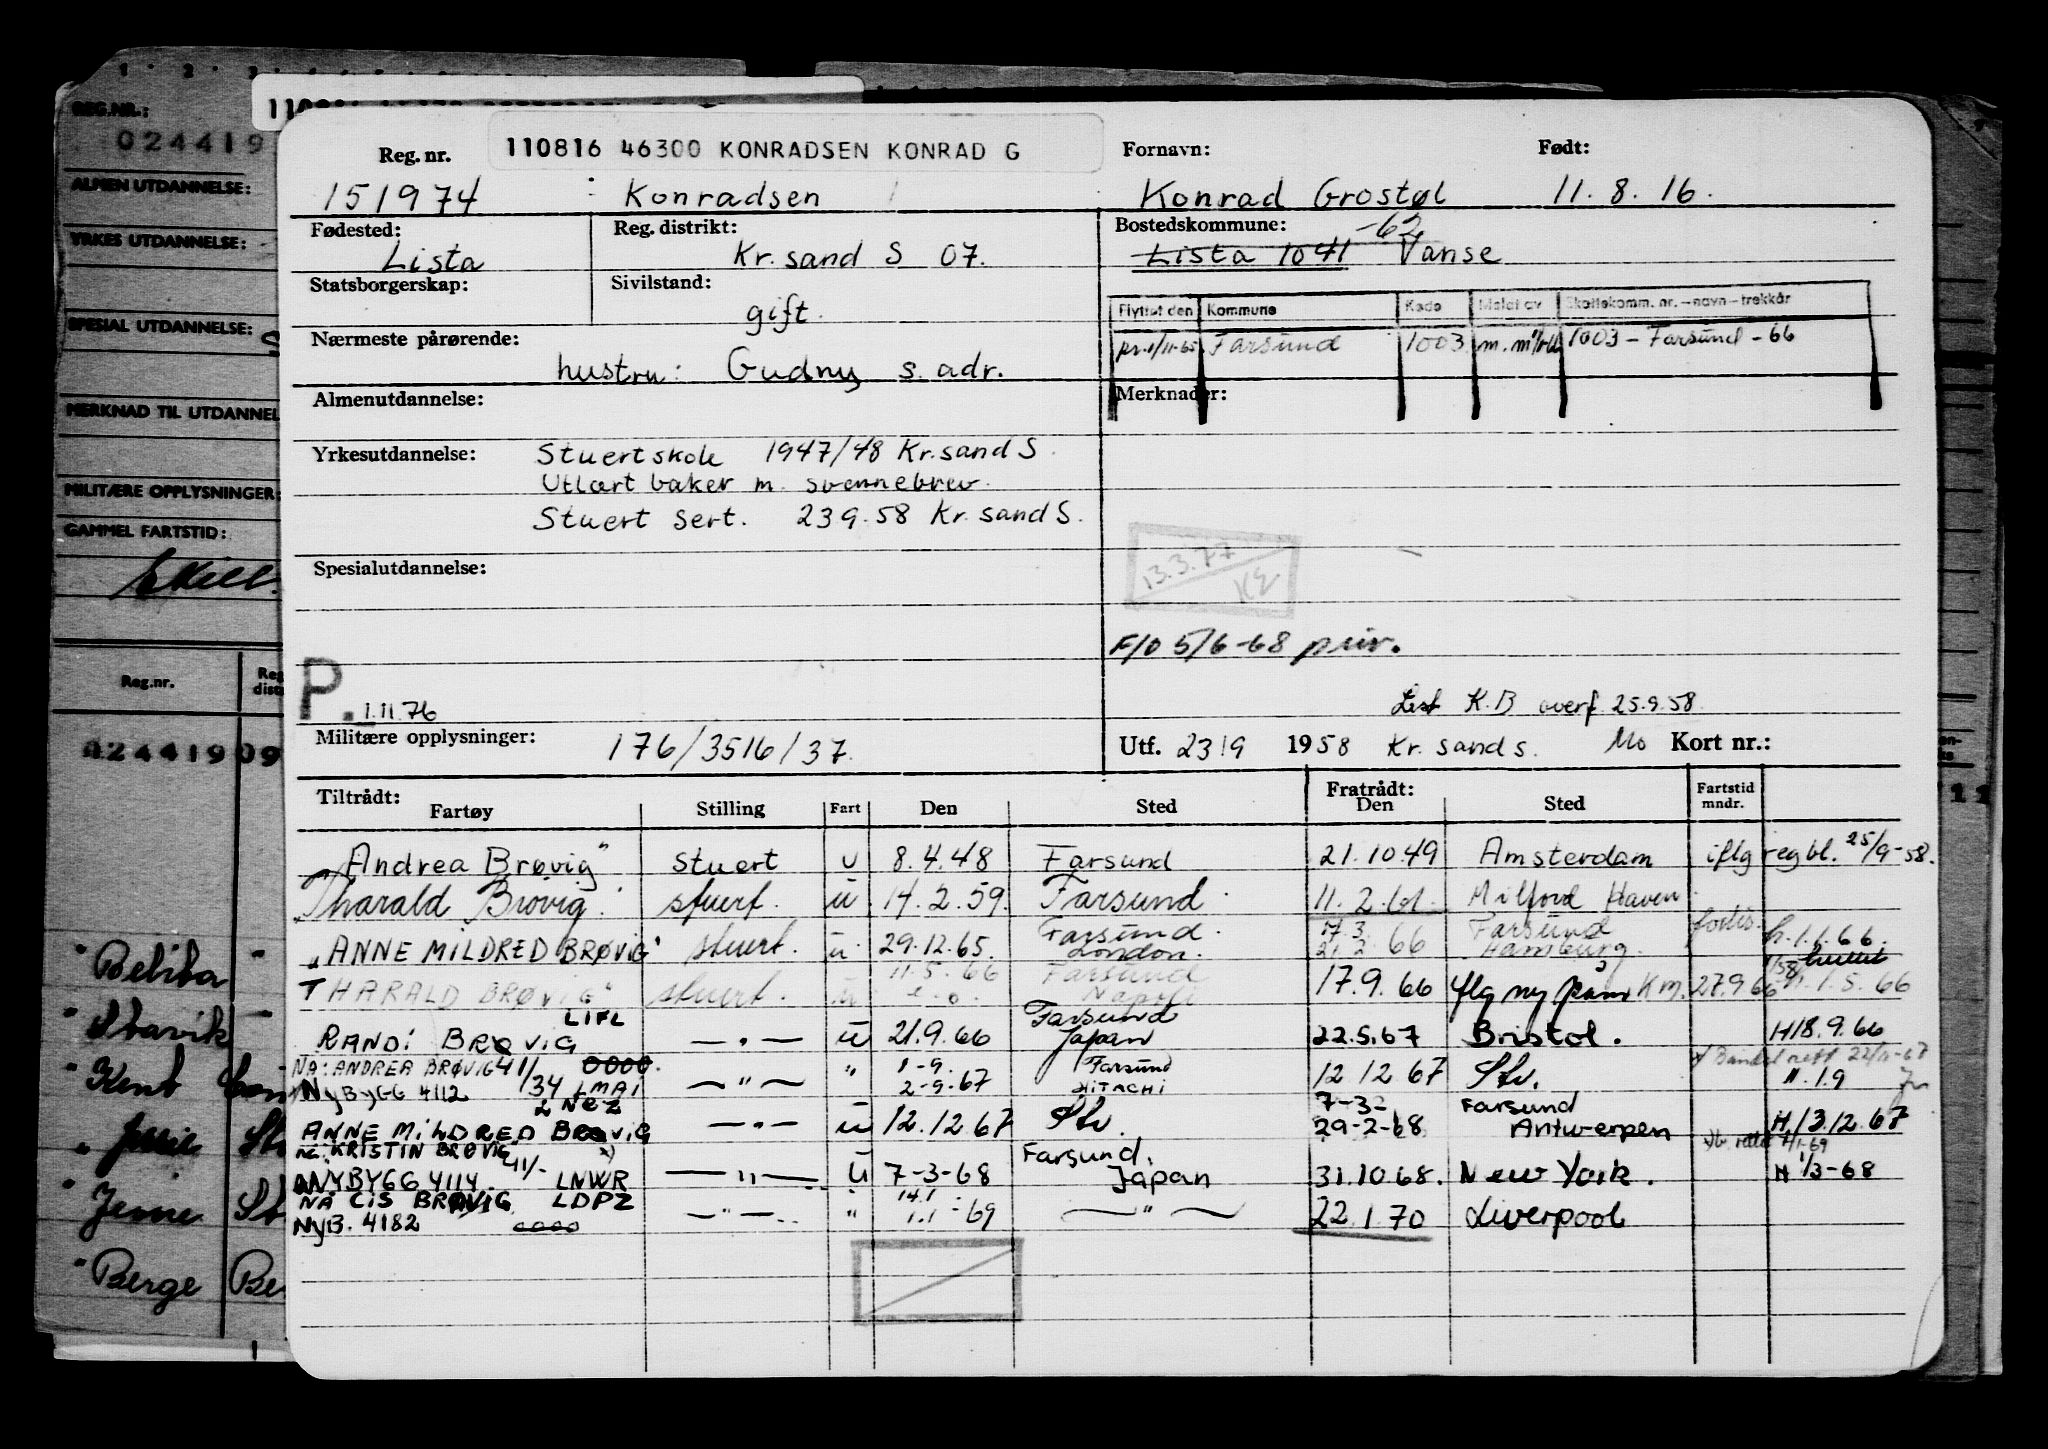 REG.NR.:
024419
ALMEN UTDANNELSE:
YRKES UTDANNELSE:
SPESIAL UTDANNELSE:
MERKNAD TIL UTDANNEL
MILITÆRE OPPLYSNINGER:
GAMMEL FARTSTID:
Reg.nr.
024419 09
"Belita"
"Stavik"
"Kent
"Jessie St
"Jenne St
"Berge Be
Reg. nr. 110816 46300 KONRADSEN KONRAD G Fornavn: Født:
151974 Konradsen Konrad Grostøl 11.8.16.
Fødested: Reg. distrikt: Bostedskommune: -62
Lista Kr.sand S 07. Lista 1041 Vanse
Statsborgerskap: Sivilstand:
gift.
Flyttet den Kommune Kode Meldt av Skattekomm. nr.-navn-trekkår
pr.1/11-65 Farsund 1003 1003 - Farsund - 66
Nærmeste pårørende:
hustru: Gudny s. adr.
Almenutdannelse: Merknader:
Yrkesutdannelse: Stuertskole 1947/48 Kr.sand S.
Utlært baker m. svennebrev.
Stuert sert. 239.58 Kr.sand S.
Spesialutdannelse:
13.3.77
F/O 5/6-68 priv.
P. 1.11.76
K.B overf 25.9.58
Militære opplysninger: 176/3516/37.
Utf. 23/9 1958 Kr.sand s. Mo Kort nr.:
Tiltrådt: Fratrådt: Fartstid
Fartøy Stilling Fart Den Sted Den Sted mndr.
"Andrea Brøvig" stuert u 8.4.48 Farsund 21.10.49 Amsterdam iflg regbl. 25/9-58.
"Tharald Brøvig" stuert. u 14.2.59. Farsund 11.2.61. Milford Haven
"ANNE MILDRED BRØVIG" stuert. u 29.12.65. Farsund. London. 21.2.66 Farsund Hamburg. h.1.1.66.
THARALD BRØVIG" stuert. u 11.5.66 Farsund Napoli 17.9.66 flg ny påm Km. 27.9.66 1.5.66
LIFL
RANDI BRØVIG —"— u 21.9.66 Farsund Japan 22.5.67 Bristol. H18.9.66
NA: ANDREA BRØVIG 41/
NYBYGG 4112 /34 LMAI —"— " 1-9. 2-9-67 Farsund HITACHI 12.12.67 Stv. 22/11-67 " 1.9
LNEZ
ANNE MILDRED BRØVIG —"— u 12.12.67 Stv. 7-3- 29-2-68 Farsund Antwerpen H.13.12.67
NÅ: KRISTIN BRØVIG 41/-
NYBYGG 4114. LNWR —"— u 7-3-68 Farsund. Japan 31.10.68. New York. H 1/3-68
NÅ CIS BRØVIG LDPZ
NYB. 4182 —"— " 14.1 1.1-69 —"— 22.1.70 Liverpool